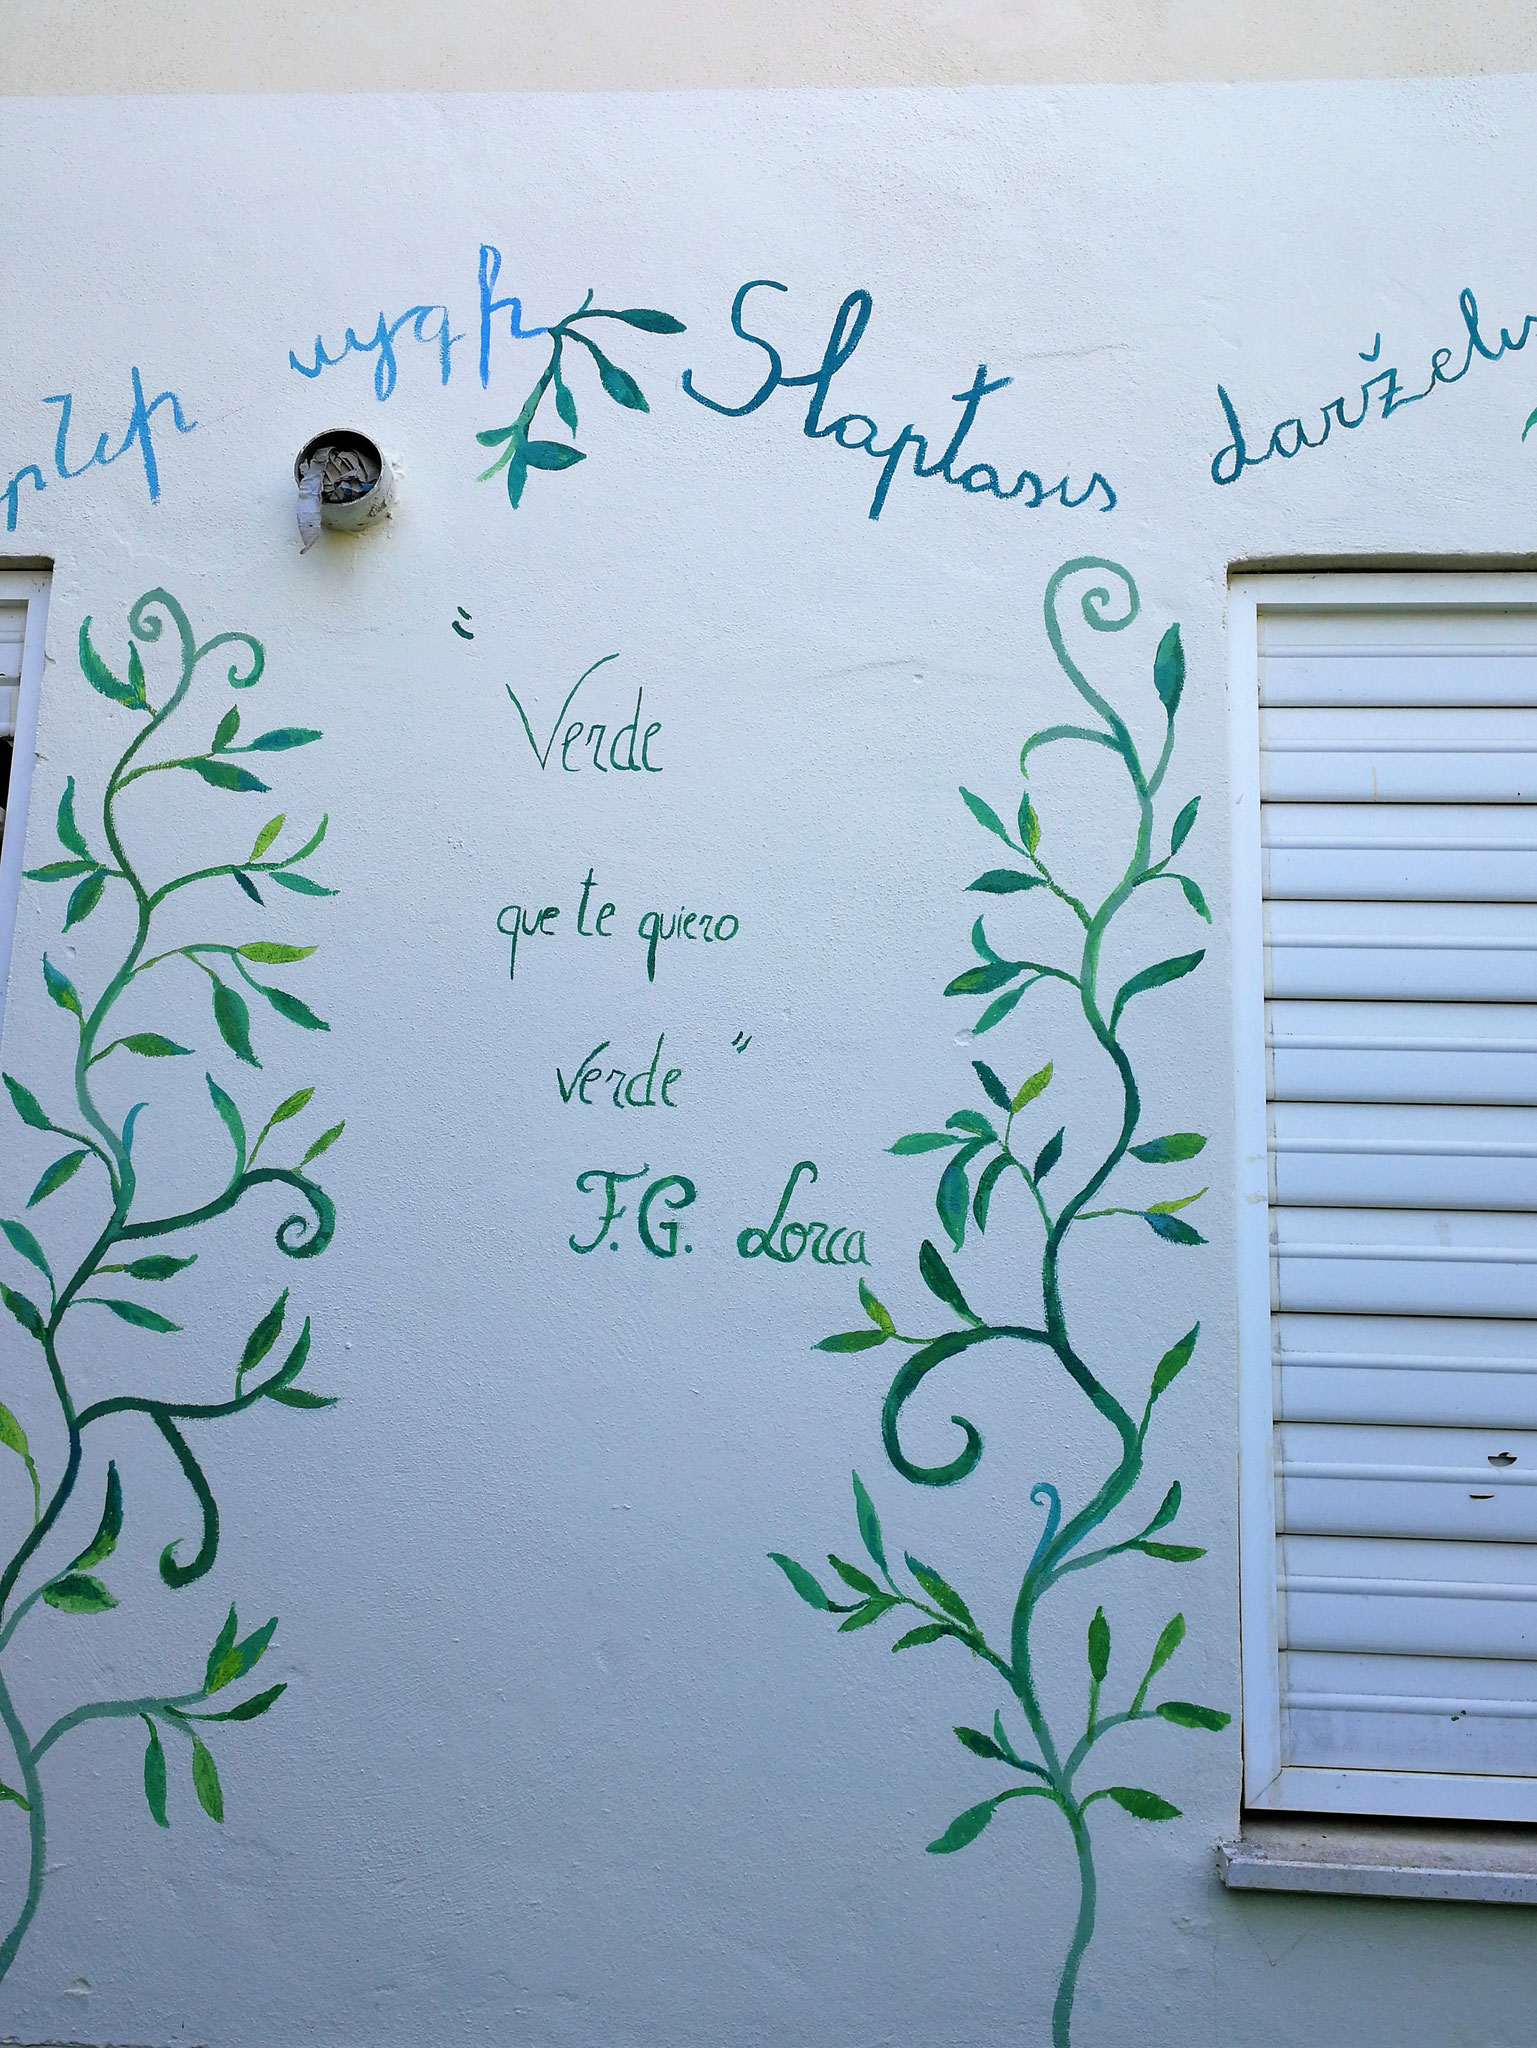 ղտնի այգի Slaptasis darželi
"Verde
que te quiero
verde"
F.G. Lorca